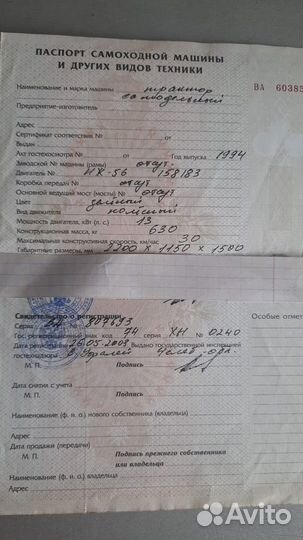 ПАСПОРТ САМОХОДНОЙ МАШИНЫ
И ДРУГИХ ВИДОВ ТЕХНИКИ
Наименование и марка машины трактор
самодельный
ВА 60385
Предприятие-изготовитель
Адрес
Сертификат соответствия № от
Выдан
Акт гостехосмотра № от Год выпуска 1994
Заводской № машины (рамы) отсут
Двигатель № 158183
Коробка передач № отсут
Основной ведущий мост (мосты) № отсут
Цвет
Вид движителя колёсный
Мощность двигателя, кВт (л. с.) 13
Конструкционная масса, кг 630
Максимальная конструктивная скорость, км/час 30
Габаритные размеры, мм 2200 х 1150 х 1500
Свидетельство о регистрации Особые отмет
Серия ВА № 807693
Гос. регистрационный знак код 74 серия ХН № 0240
Дата регистрации 26.05.2008 Выдано государственной инспекцией
гостехнадзора Челяб. обл.
М. П. Подпись
Дата снятия с учета
М. П. Подпись
Наименование (ф. и. о.) нового собственника (владельца)
Адрес
Дата продажи (передачи)
М. П. Подпись прежнего собственника
или владельца
Наименование (ф. и. о.) владельца
Адрес
Avito